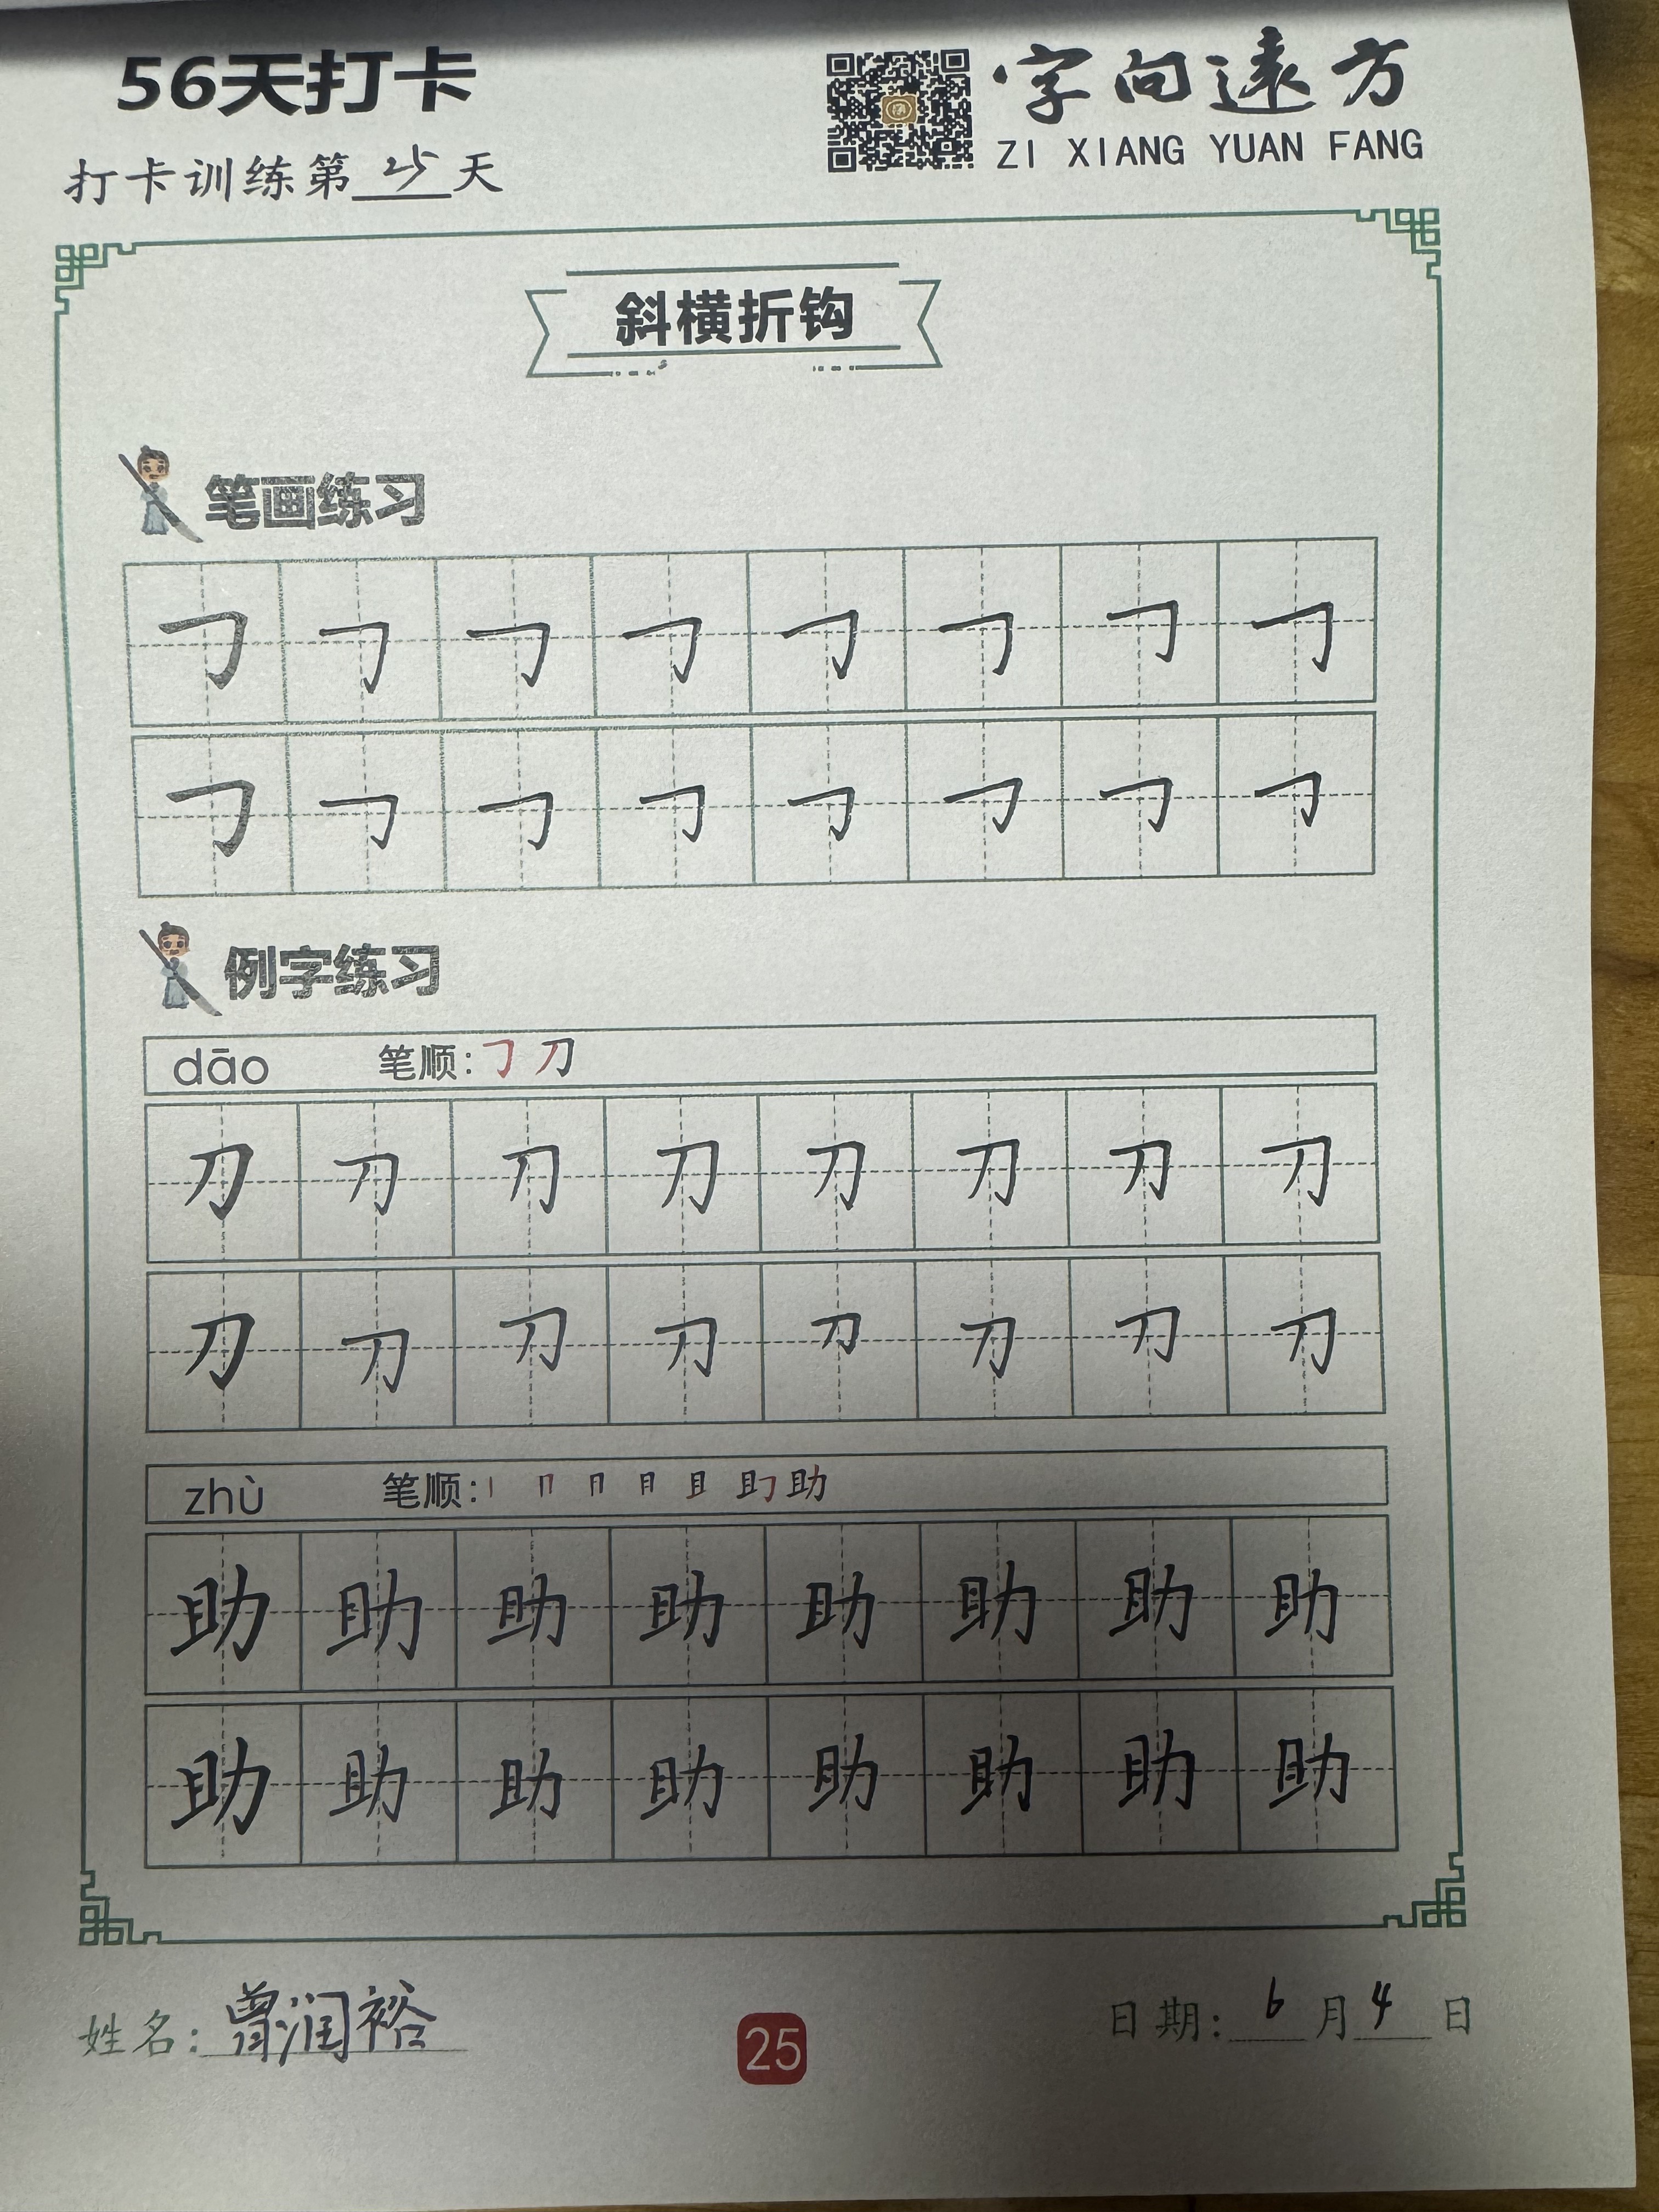 56天打卡
字向遠方
ZI XIANG YUAN FANG
打卡训练第25天
斜横折钩
笔画练习
𠃌 𠃌 𠃌 𠃌 𠃌 𠃌 𠃌 𠃌
𠃌 𠃌 𠃌 𠃌 𠃌 𠃌 𠃌 𠃌
例字练习
dāo 笔顺:𠃌 刀
刀 刀 刀 刀 刀 刀 刀 刀
刀 刀 刀 刀 刀 刀 刀 刀
zhù 笔顺:丨 𠃌 助
助 助 助 助 助 助 助 助
助 助 助 助 助 助 助 助
姓名:曾润裕
25
日期:6月4日